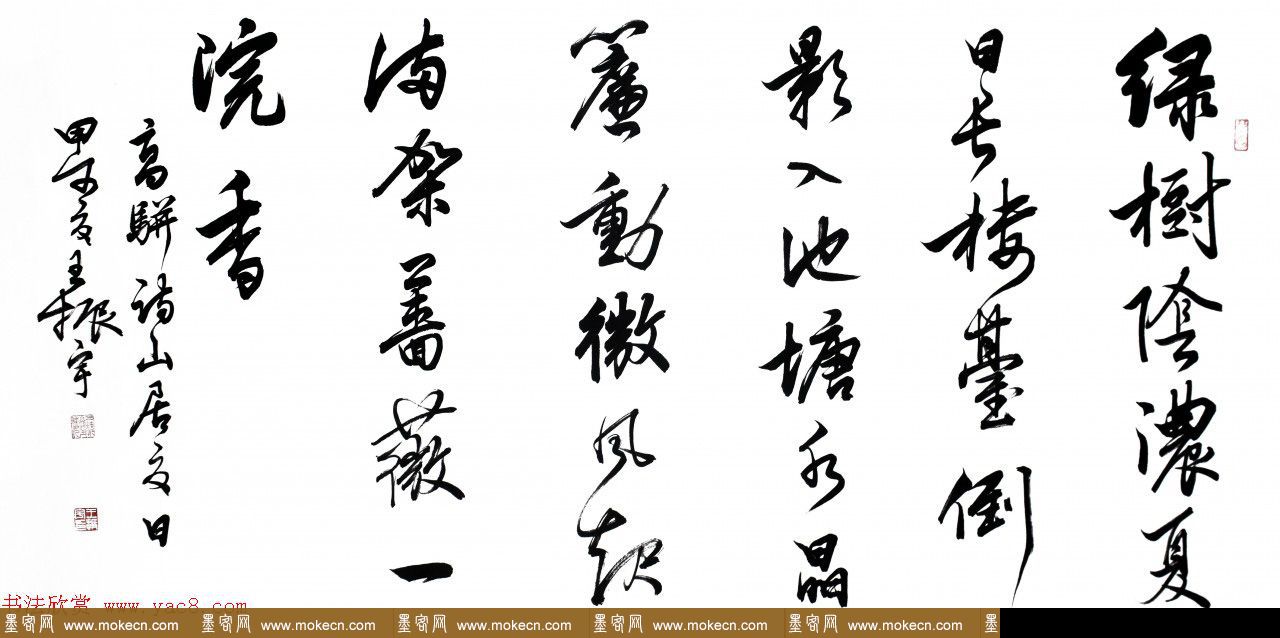 绿樹陰濃夏
日長楼臺倒
影入池塘水晶
簾動微風起
满架薔薇一
院香
高駢詩山居夏日
甲午夏王振宇
书法欣赏 www.yac8.com
墨客网 www.mokecn.com 墨客网 www.mokecn.com 墨客网 www.mokecn.com 墨客网 www.mokecn.com 墨客网 www.mokecn.com